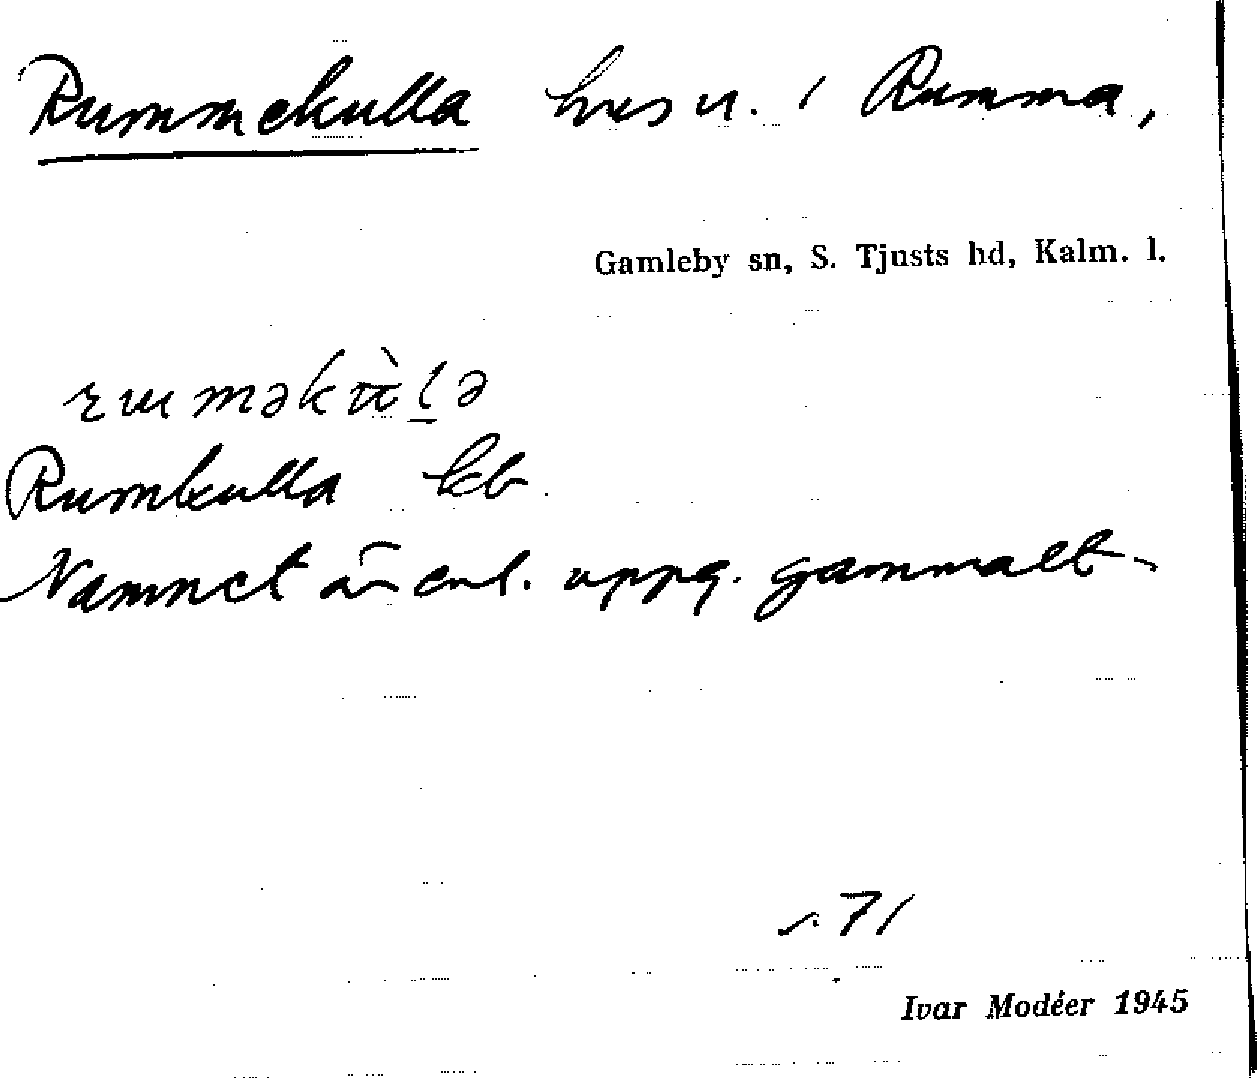 Rummekulla hus n. i Rumma,
Gamleby sn, S. Tjusts hd, Kalm. l.
Rumkulla kb.
Namnet är enl. uppg. gammalt
s. 71
Ivar Modéer 1945